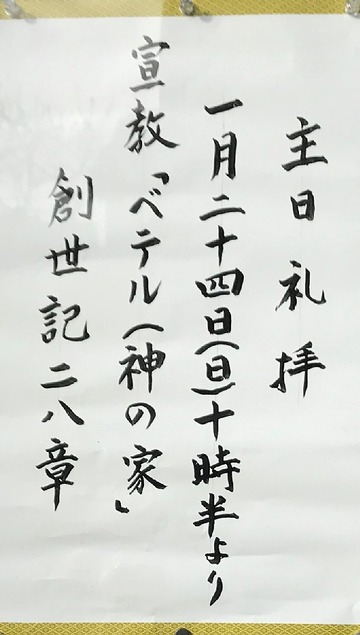 主日礼拝
一月二十四日(日)十時半より
宣教「ベテル(神の家」
創世記二八章